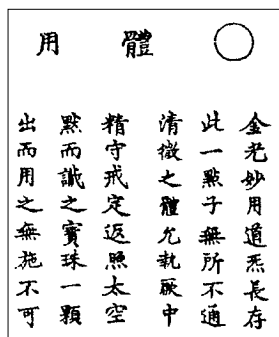 體用
金光妙用道炁長存
此一點子無所不通
清微之體允執厥中
精守戒定返照太空
默而識之寶珠一顆
出而用之無施不可